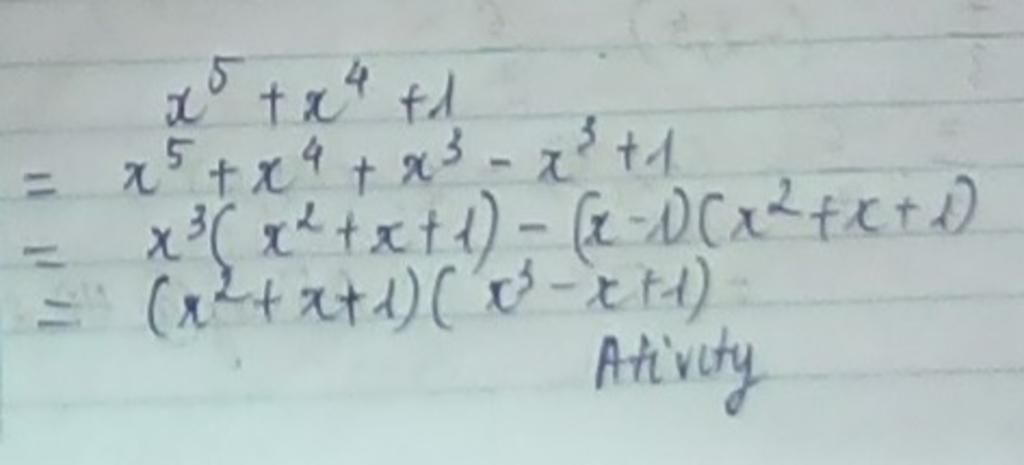 x⁵ + x⁴ + 1
= x⁵ + x⁴ + x³ - x³ + 1
= x³( x² + x + 1) - (x - 1)(x² + x + 1)
= (x² + x + 1)( x³ - x + 1)
Ativity